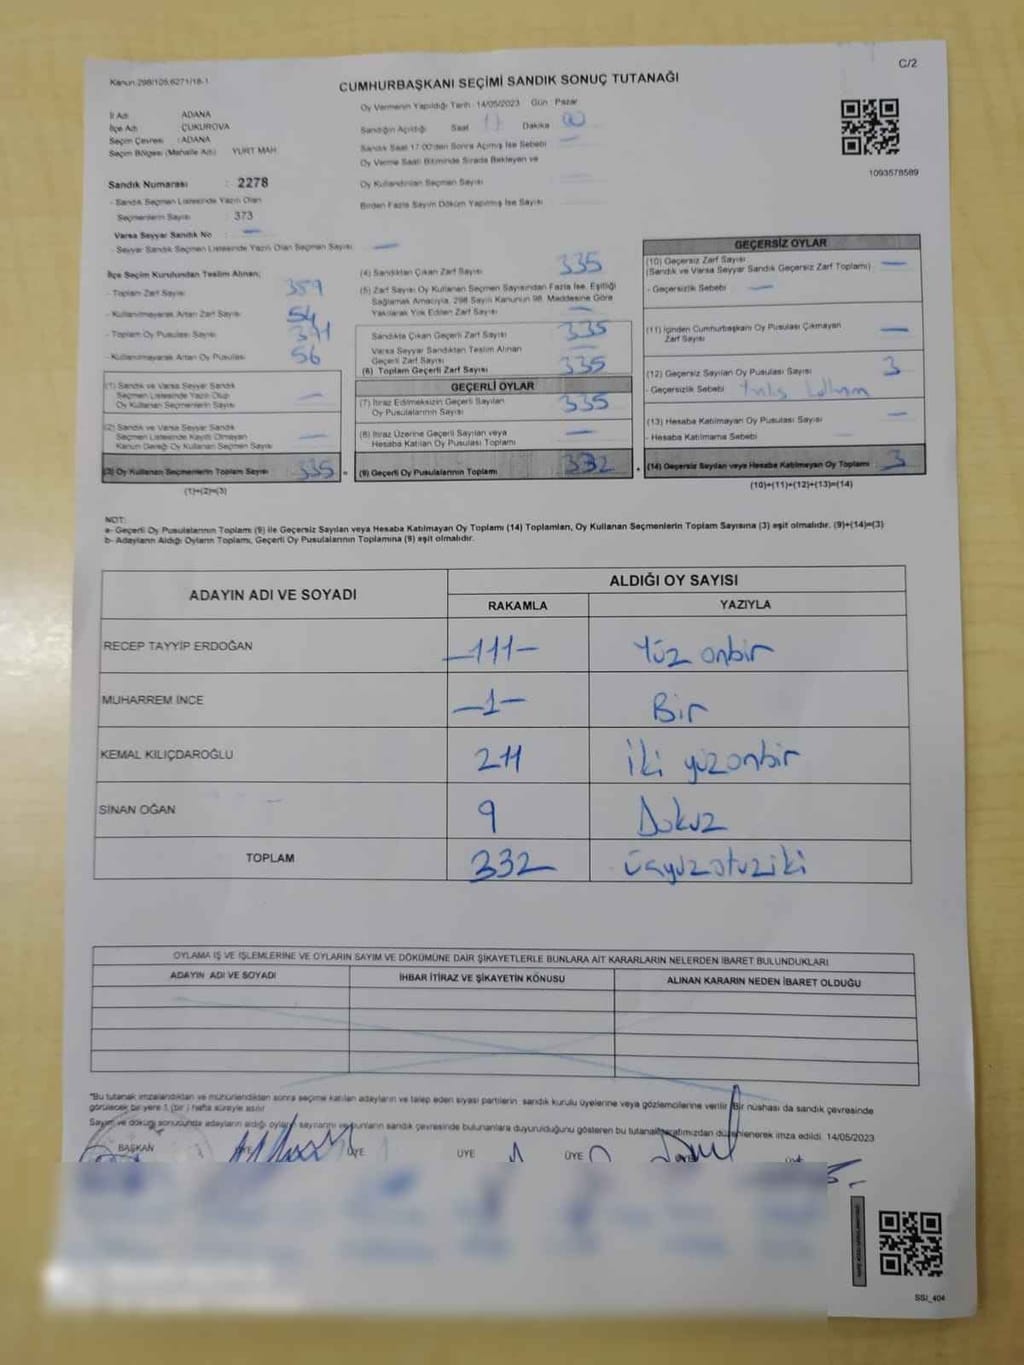 Kanun:298/105,6271/18-1
C/2
CUMHURBAŞKANI SEÇİMİ SANDIK SONUÇ TUTANAĞI
İl Adı ADANA
İlçe Adı ÇUKUROVA
Seçim Çevresi : ADANA
Seçim Bölgesi (Mahalle Adı) YURT MAH
Sandık Numarası : 2278
- Sandık Seçmen Listesinde Yazılı Olan
Seçmenlerin Sayısı : 373
Varsa Seyyar Sandık No : —
- Seyyar Sandık Seçmen Listesinde Yazılı Olan Seçmen Sayısı : —
Oy Vermenin Yapıldığı Tarih : 14/05/2023 Gün : Pazar
Sandığın Açıldığı Saat 17 Dakika
Sandık Saat 17:00'den Sonra Açılmış İse Sebebi —
Oy Verme Saati Bitiminde Sırada Bekleyen ve
Oy Kullandırılan Seçmen Sayısı
Birden Fazla Sayım Döküm Yapılmış İse Sayısı
1093578589
İlçe Seçim Kurulundan Teslim Alınan;
- Toplam Zarf Sayısı
- Kullanılmayarak Artan Zarf Sayısı 54
- Toplam Oy Pusulası Sayısı
- Kullanılmayarak Artan Oy Pusulası 56
(1) Sandık ve Varsa Seyyar Sandık
Seçmen Listesinde Yazılı Olup
Oy Kullanan Seçmenlerin Sayısı —
(2) Sandık ve Varsa Seyyar Sandık
Seçmen Listesinde Kayıtlı Olmayan
Kanun Gereği Oy Kullanan Seçmen Sayısı —
(3) Oy Kullanan Seçmenlerin Toplam Sayısı 335
(1)+(2)=(3)
(4) Sandıktan Çıkan Zarf Sayısı 335
(5) Zarf Sayısı Oy Kullanan Seçmen Sayısından Fazla İse, Eşitliği
Sağlamak Amacıyla, 298 Sayılı Kanunun 98. Maddesine Göre
Yakılarak Yok Edilen Zarf Sayısı —
Sandıkta Çıkan Geçerli Zarf Sayısı 335
Varsa Seyyar Sandıktan Teslim Alınan
Geçerli Zarf Sayısı —
(6) Toplam Geçerli Zarf Sayısı 335
GEÇERLİ OYLAR
(7) İtiraz Edilmeksizin Geçerli Sayılan
Oy Pusulalarının Sayısı 335
(8) İtiraz Üzerine Geçerli Sayılan veya
Hesaba Katılan Oy Pusulası Toplamı —
(9) Geçerli Oy Pusulalarının Toplamı 332
GEÇERSİZ OYLAR
(10) Geçersiz Zarf Sayısı
(Sandık ve Varsa Seyyar Sandık Geçersiz Zarf Toplamı) —
- Geçersizlik Sebebi : —
(11) İçinden Cumhurbaşkanı Oy Pusulası Çıkmayan
Zarf Sayısı —
(12) Geçersiz Sayılan Oy Pusulası Sayısı 3
- Geçersizlik Sebebi :
(13) Hesaba Katılmayan Oy Pusulası Sayısı —
- Hesaba Katılmama Sebebi :
(14) Geçersiz Sayılan veya Hesaba Katılmayan Oy Toplamı : 3
(10)+(11)+(12)+(13)=(14)
NOT:
a- Geçerli Oy Pusulalarının Toplamı (9) ile Geçersiz Sayılan veya Hesaba Katılmayan Oy Toplamı (14) Toplamları, Oy Kullanan Seçmenlerin Toplam Sayısına (3) eşit olmalıdır. (9)+(14)=(3)
b- Adayların Aldığı Oyların Toplamı, Geçerli Oy Pusulalarının Toplamına (9) eşit olmalıdır.
ADAYIN ADI VE SOYADI
ALDIĞI OY SAYISI
RAKAMLA YAZIYLA
RECEP TAYYİP ERDOĞAN —111— Yüz onbir
MUHARREM İNCE —1— Bir
KEMAL KILIÇDAROĞLU 211 İki yüzonbir
SİNAN OĞAN 9 Dokuz
TOPLAM 332 üçyüzotuziki
OYLAMA İŞ VE İŞLEMLERİNE VE OYLARIN SAYIM VE DÖKÜMÜNE DAİR ŞİKAYETLERLE BUNLARA AİT KARARLARIN NELERDEN İBARET BULUNDUKLARI
ADAYIN ADI VE SOYADI İHBAR İTİRAZ VE ŞİKAYETİN KONUSU ALINAN KARARIN NEDEN İBARET OLDUĞU
"Bu tutanak imzalandıktan ve mühürlendikten sonra seçime katılan adayların ve talep eden siyasi partilerin sandık kurulu üyelerine veya gözlemcilerine verilir. Bir nüshası da sandık çevresinde
görülecek bir yere 1 (bir) hafta süreyle asılır
Sayım ve dökü sonucunda adayların aldığı oyların sayılarını ve bunların sandık çevresinde bulunanlara duyurulduğunu gösteren bu tutanak tarafımızdan düzenlenerek imza edildi. 14/05/2023
BAŞKAN ÜYE ÜYE ÜYE
SSI_404